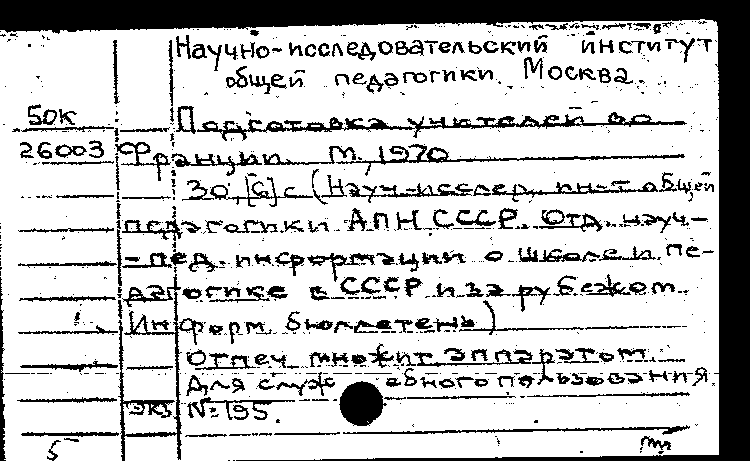 Научно-исследовательский институт
общей педагогики. Москва.
50к Подготовка учителей во
26003 Франции. М., 1970
30, [6] с (Науч.-исслед. ин-т общей
педагогики АПН СССР. Отд. науч-
-пед. информации о школе и пе-
дагогике в СССР и за рубежом.
Информ. бюллетень)
Отпеч. множит. аппаратом.
Для служебного пользования
экз №195.
5